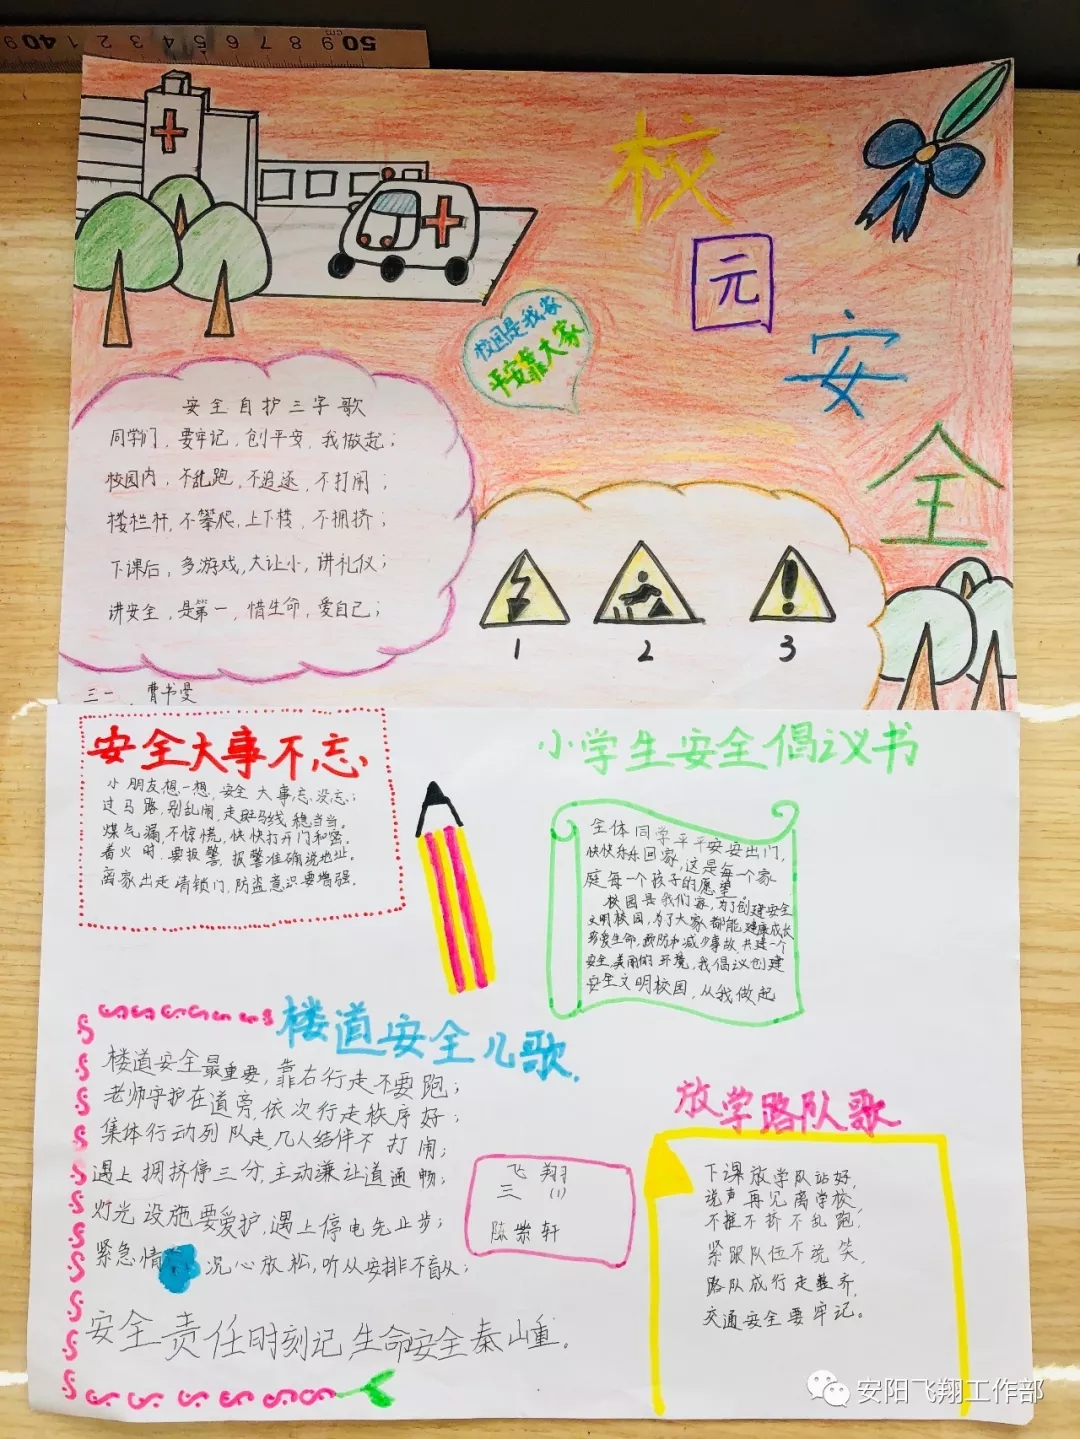 校
园
安
全
校园是我家
平安靠大家
安全自护三字歌
同学们，要牢记，创平安，我做起；
校园内，不乱跑，不追逐，不打闹；
楼栏杆，不攀爬，上下楼，不拥挤；
下课后，多游戏，大让小，讲礼仪；
讲安全，是第一，惜生命，爱自己；
1
2
3
三一，曹书曼
安全大事不忘
小朋友想一想，安全大事忘没忘；
过马路，别乱闹，走斑马线，稳当当。
煤气漏，不惊慌，快快打开门和窗。
着火时，要报警，报警准确说地址。
离家出走清锁门，防盗意识要增强。
小学生安全倡议书
全体同学平平安安出门，
快快乐乐回家，这是每一个家
庭每一个孩子的愿望。
校园是我们家，为了创建安全
文明校园，为了大家都能健康成长
珍爱生命，预防和减少事故，共建一个
安全，美丽的环境，我倡议创建
安全文明校园，从我做起
楼道安全儿歌
楼道安全最重要，靠右行走不要跑；
老师守护在道旁，依次行走秩序好；
集体行动列队走，几人结伴不打闹；
遇上拥挤停三分，主动谦让道通畅；
灯光设施要爱护，遇上停电先止步；
紧急情况心放松，听从安排不盲从；
安全责任时刻记，生命安全泰山重。
飞翔
三（1）
陈紫轩
放学路队歌
下课放学队站好，
说声再见离学校，
不推不挤不乱跑，
紧跟队伍不说笑，
路队成行走整齐，
交通安全要牢记。
安阳飞翔工作部
50 9 8 7 6 5 4 3 2 1 40 9
cm